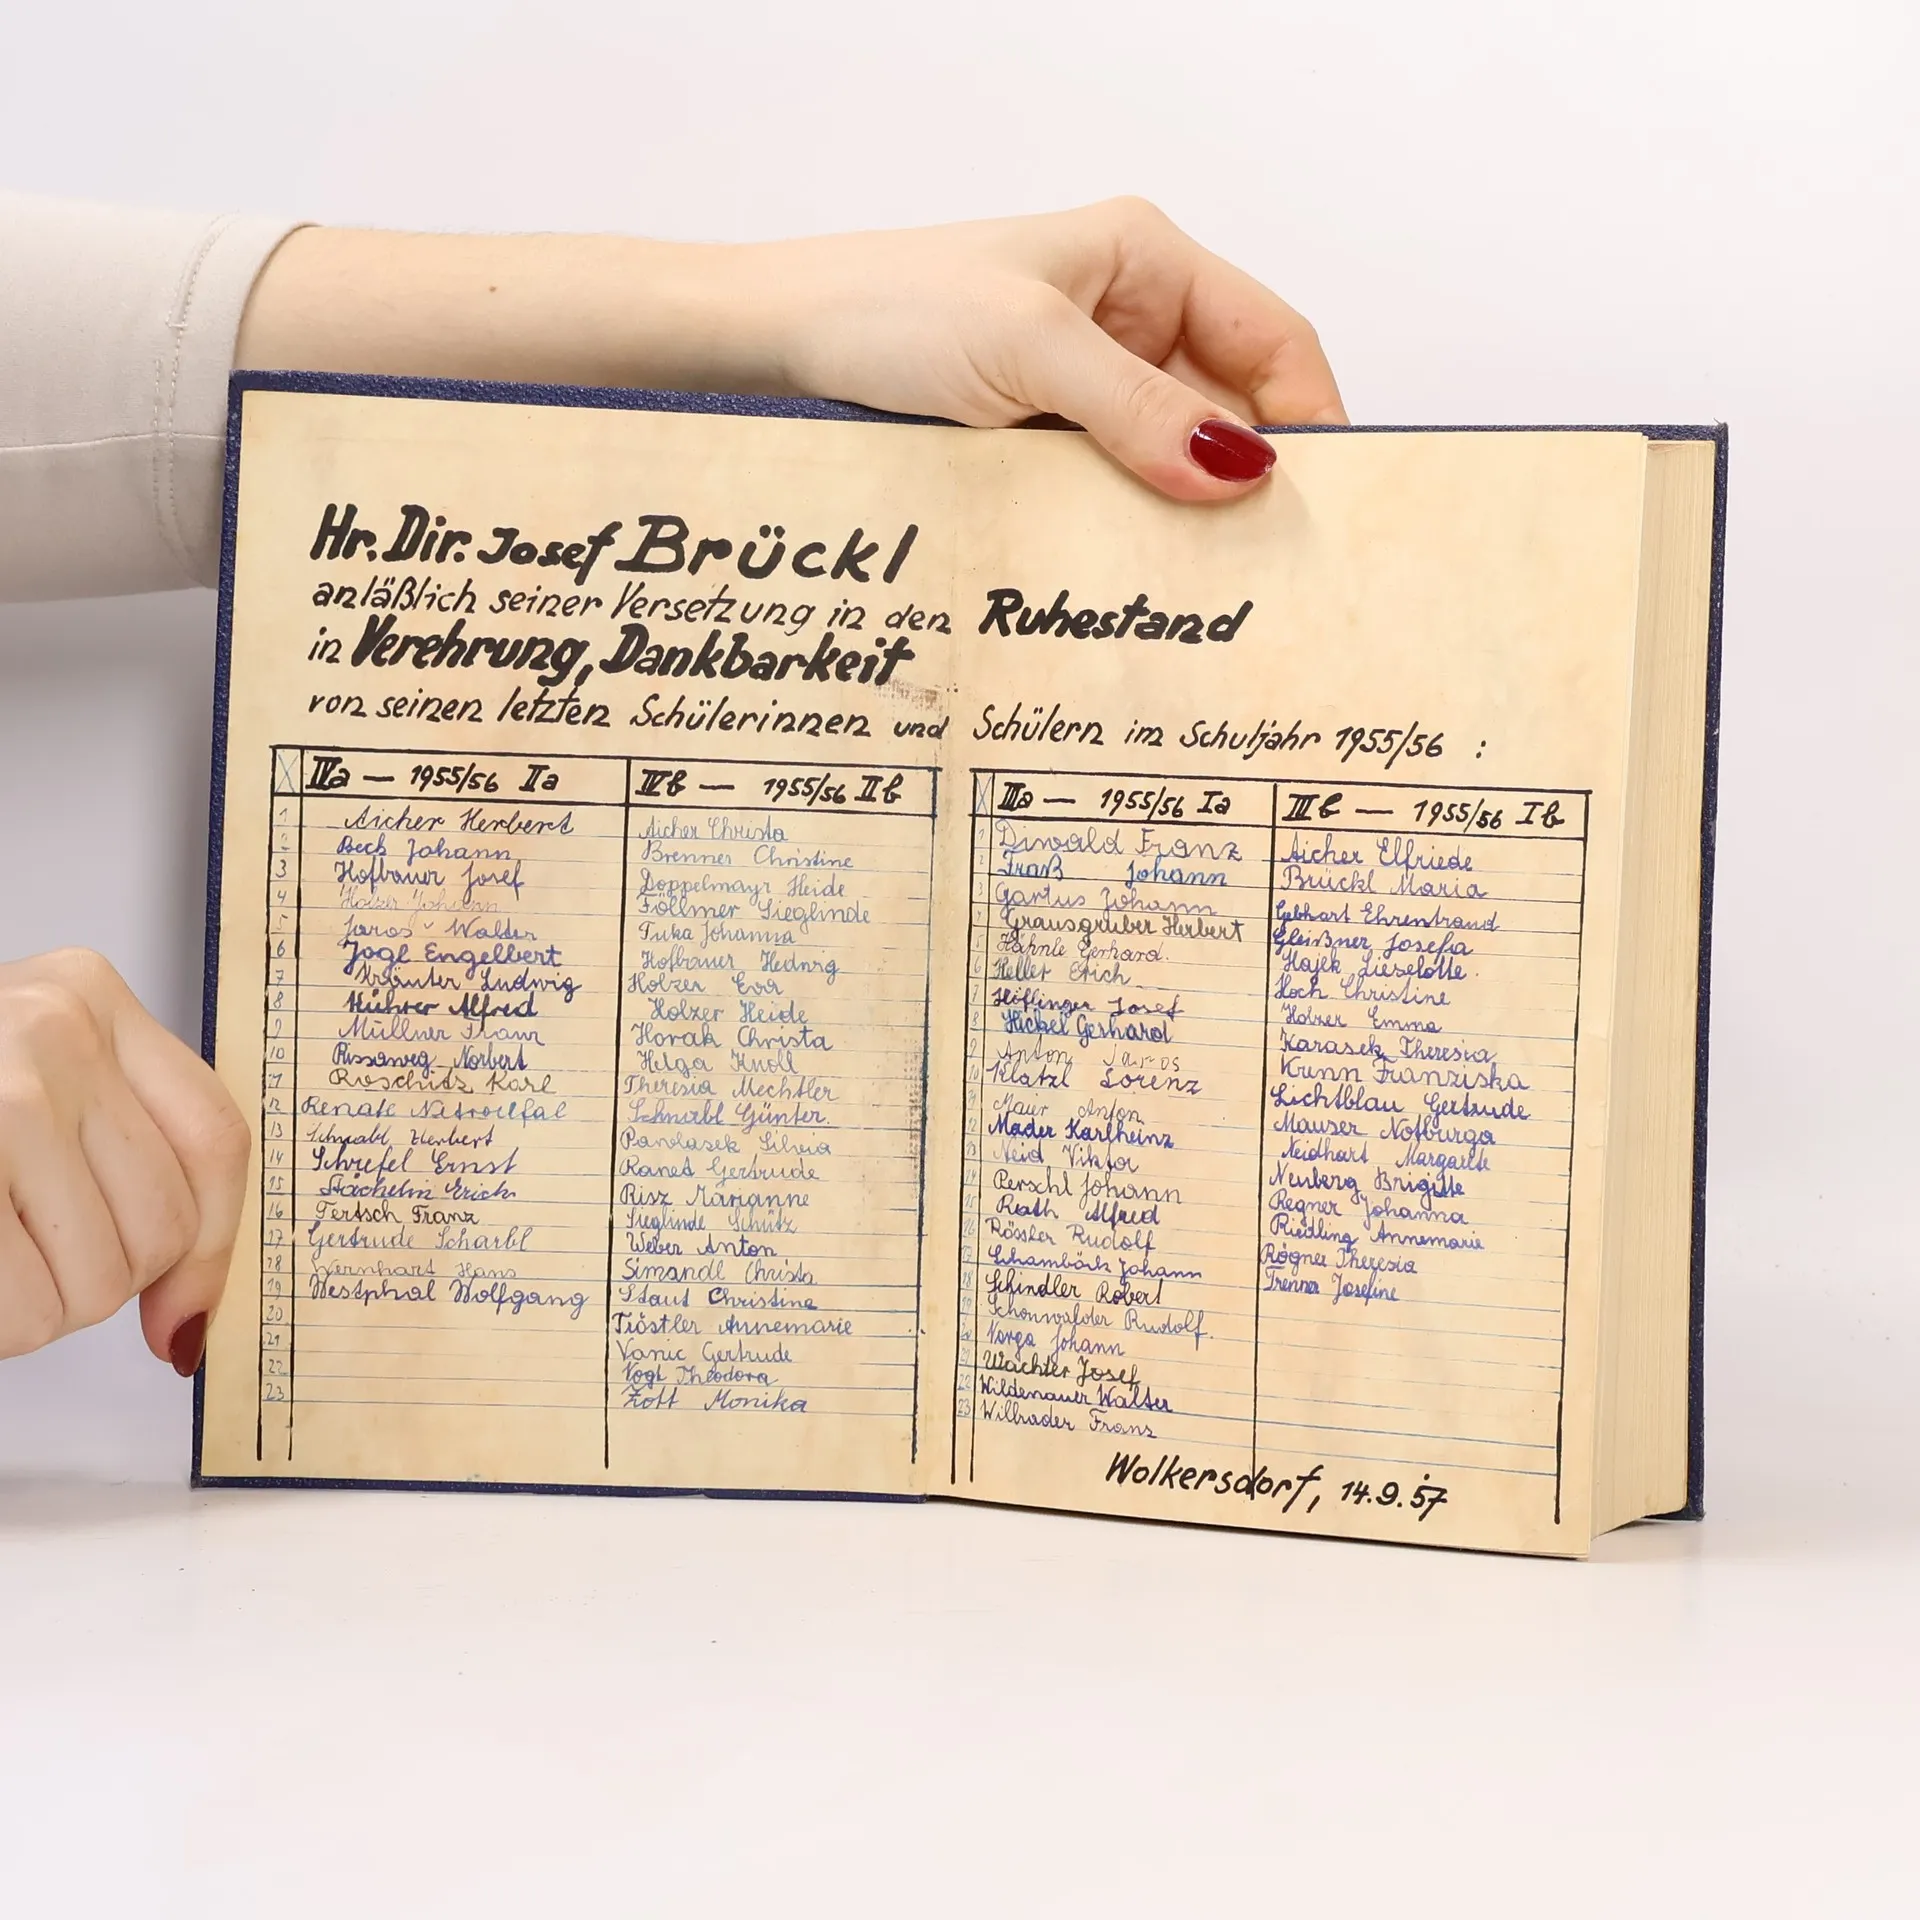 Hr. Dir. Josef Brückl
anläßlich seiner Versetzung in den Ruhestand
in Verehrung, Dankbarkeit
von seinen letzten Schülerinnen und Schülern im Schuljahr 1955/56 :
IVa — 1955/56 IIa
1 Aicher Herbert
2 Beck Johann
3 Hofbauer Josef
4 Holzer Johann
5 Jaros Walter
6 Jogl Engelbert
7 Kräuter Ludwig
8 Kührer Alfred
9 Müllner Franz
10 Rissaweg Norbert
11 Roschitz Karl
12 Renate
13 Schnabl Herbert
14 Schrefel Ernst
15 Stächelin Erich
16 Tertsch Franz
17 Gertrude Scharbl
18 Wernhart Hans
19 Westphal Wolfgang
20
21
22
23
IVb — 1955/56 IIb
Aicher Christa
Brenner Christine
Doppelmayr Heide
Föllmer Sieglinde
Fuka Johanna
Hofbauer Hedwig
Holzer Eva
Holzer Heide
Horak Christa
Helga Knoll
Theresia Mechtler
Schnabl Günter.
Pavlasek Silvia
Raned Gertrude
Risz Marianne
Sieglinde Schütz
Weber Anton
Simandl Christa
Staut Christine
Tröstler Annemarie
Vanic Gertrude
Vogt Theodora
Zott Monika
IIIa — 1955/56 Ia
1 Diwald Franz
2 Fraß Johann
3 Gartus Johann
4 Grausgruber Herbert
5 Hähnle Gerhard.
6 Heller Erich
7 Höflinger Josef
8 Hickel Gerhard
9 Anton Jaros
10 Klatzl Lorenz
11 Maier Anton
12 Mader Karlheinz
13 Neid Viktor
14 Perschl Johann
15 Rath Alfred
16 Rössler Rudolf
17 Schamböck Johann
18 Schindler Robert
19 Schönwalder Rudolf.
20 Varga Johann
21 Wachter Josef
22 Wildenauer Walter
23 Willrader Franz
IIIb — 1955/56 Ib
Aicher Elfriede
Brückl Maria
Gebhart Ehrentraud
Gleißner Josefa
Hajek Lieselotte.
Hoch Christine
Holzer Emma
Karasek Theresia
Krenn Franziska
Lichtblau Gertrude
Mauser Notburga
Neidhart Margarete
Neuberg Brigitte
Regner Johanna
Riedling Annemarie
Rögner Theresia
Trenner Josefine
Wolkersdorf, 14.9.57